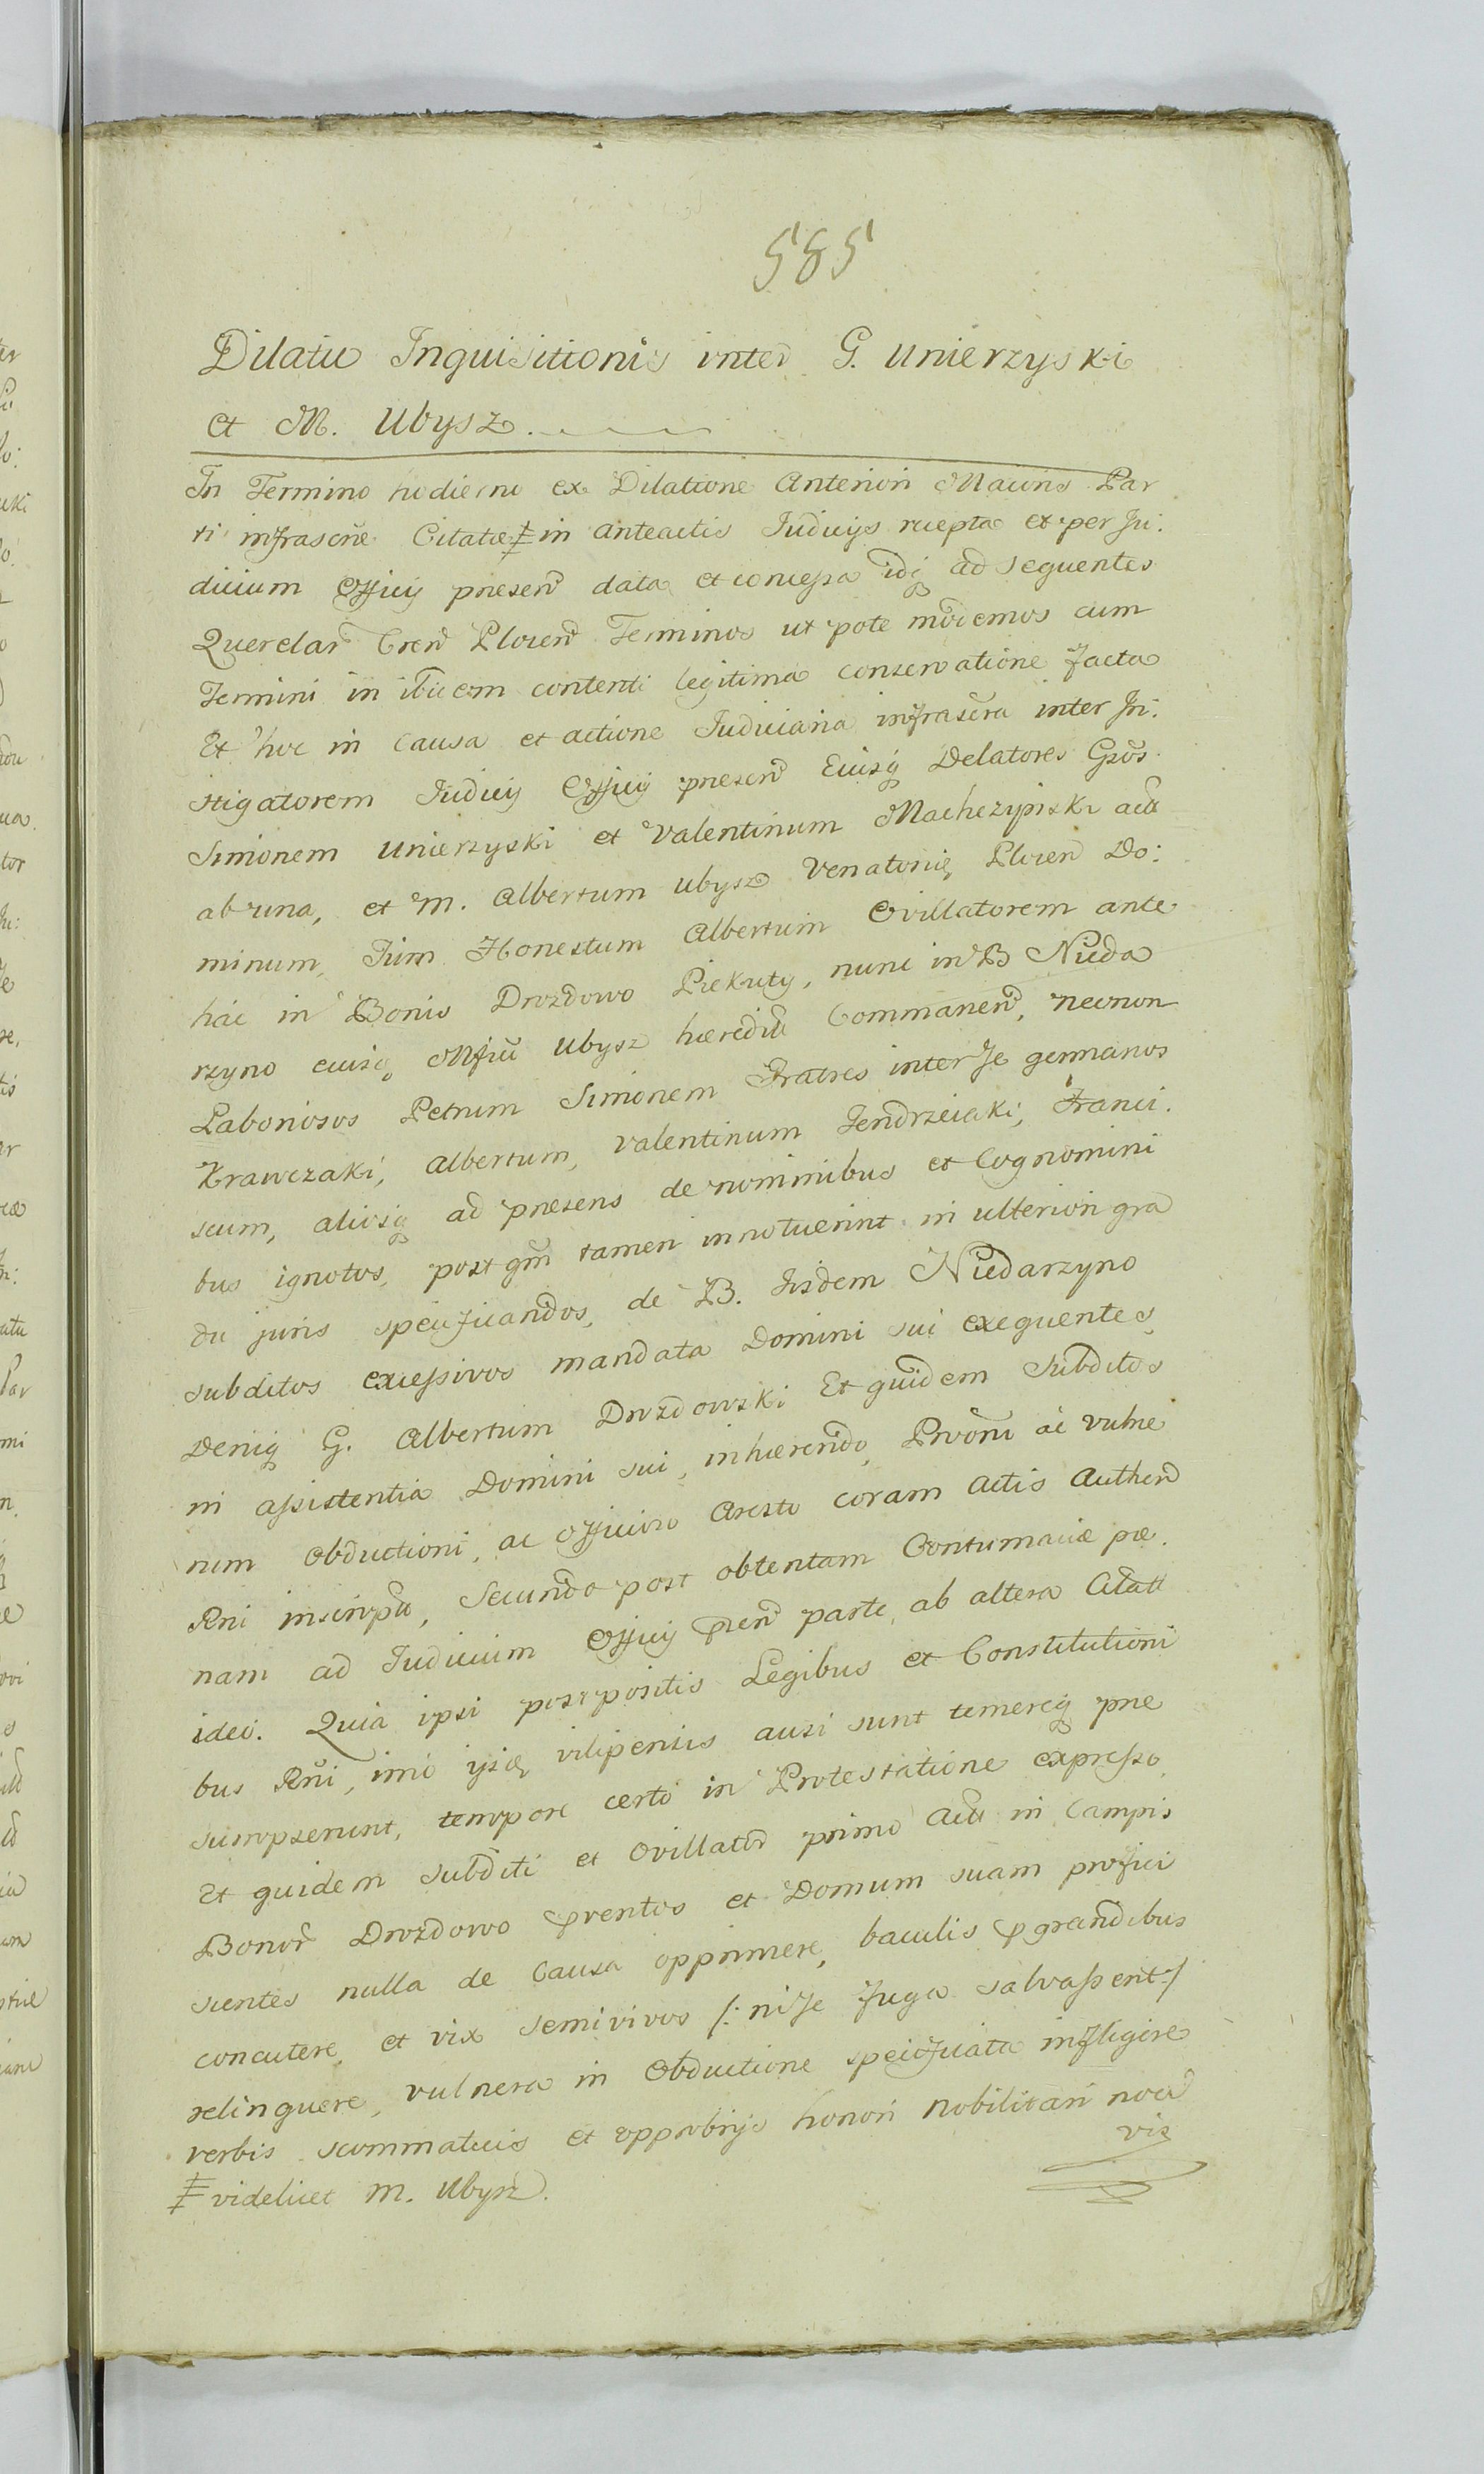 585
Dilatio Inquisitionis inter G. Unierzyski
et M. Ubysz.
In Termino hodierno ex Dilatione Anteriori Maioris Par
ti infrascrte Citatæ ǂ in anteactis Judicijs recepta et per Ju:
dicium Officij præsen data et concessa idq ad sequentes
Querelar Cren Plocen Terminos ut pote modernos cum
Termini in ibidem contenti legitima conservatione facta
Et hoc in Causa et actione Judiciaria infrascra inter In:
stigatorem Judicij Officij præsen Eiusq Delatores Gsos
Simonem Unierzyski et Valentinum Machczynski act
ab una, et M. Albertum Ubysz Venatorię Plocen Do:
minum, Tum Honestum Albertum Ovillatorem ante
hac in Bonis Drozdowo Piekuty, nunc in B Nieda
rzyno eiusq Mfici Ubysz hæredit Commanen, necnon
Laboriosos Petrum Simonem Fratres inter se germanos
Krawczaki, Albertum, Valentinum Jendrzeiaki, Franci.
scum, aliosq ad præsens de nominibus et Cognomini
bus ignotos, post qm tamen innotuerint in ulteriori gra
du juris specificandos, de B. Iisdem Niedarzyno
subditos excessivos mandata Domini sui exequentes,
Deniq G. Albertum Drozdowski Et quidem Subditos
in assistentia Domini sui, inhærendo Prvoni ac vulne
rum Obductioni, ac officioso Aresto coram Actis Authen
Rni inscripto, Secundo post obtentam Contumaciæ pæ.
nam ad Judicium Officij pren parte ab altera Citatt
ideo. Quia ipsi postpositis Legibus et Constitutioni
bus Rni, imo ijsq vilipensis ausi sunt temereq præ
sumpserunt, tempore certo in Protestatione expresso,
Et quidem subditi et Ovillator primo Act in Campis
Bonor Drozdowo prentos et Domum suam profici
scentes nulla de Causa opprimere, baculis p grandibus
concutere, et vix semivivos /: ni se fuga salvassent :/
relinquere, vulnera in Obductione specificata infligere
verbis scommaticis et opprobrijs honori Nobilitari noci
vis
ǂ videlicet M. Ubysz.